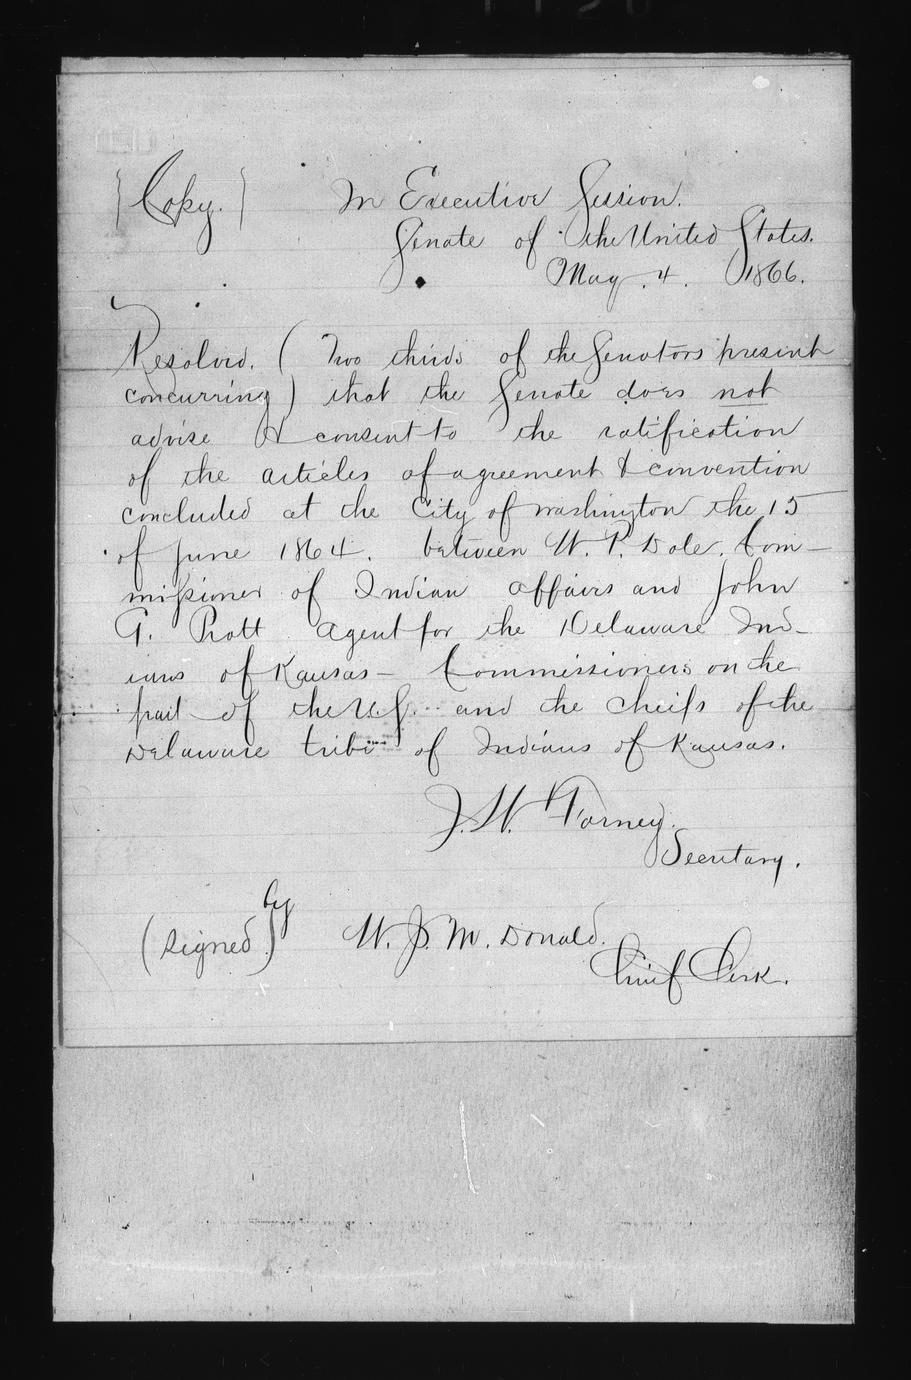 {Copy.} In Executive Session.
Senate of the United States.
May. 4. 1866.
Resolved. (Two thirds of the Senators present
concurring) that the Senate does not
advise & consent to the ratification
of the articles of agreement & convention
concluded at the City of Washington the 15
of June 1864. between W. P. Dole. Com-
missioner of Indian affairs and John
G. Pratt agent for the Delaware Ind-
ians of Kansas - Commissioners on the
part of the U.S. and the Cheifs of the
Delaware tribe of Indians of Kansas.
J. W. Forney.
Secretary.
by
(Signed.) W. J. Mc. Donald.
Chief Clerk.